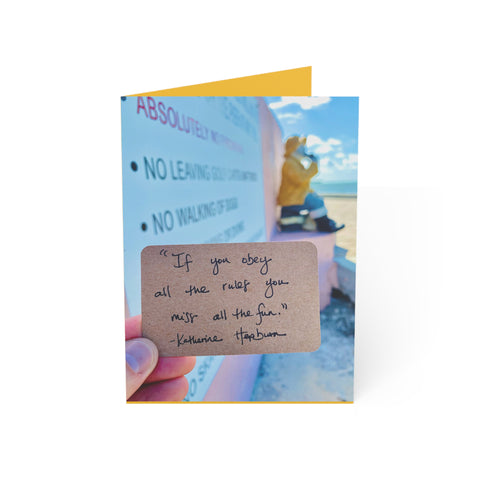 ABSOLUTELY NO
• NO LEAVING GOLF CARTS
• NO WALKING OF DOGS
"If you obey
all the rules you
miss all the fun."
-Katharine Hepburn